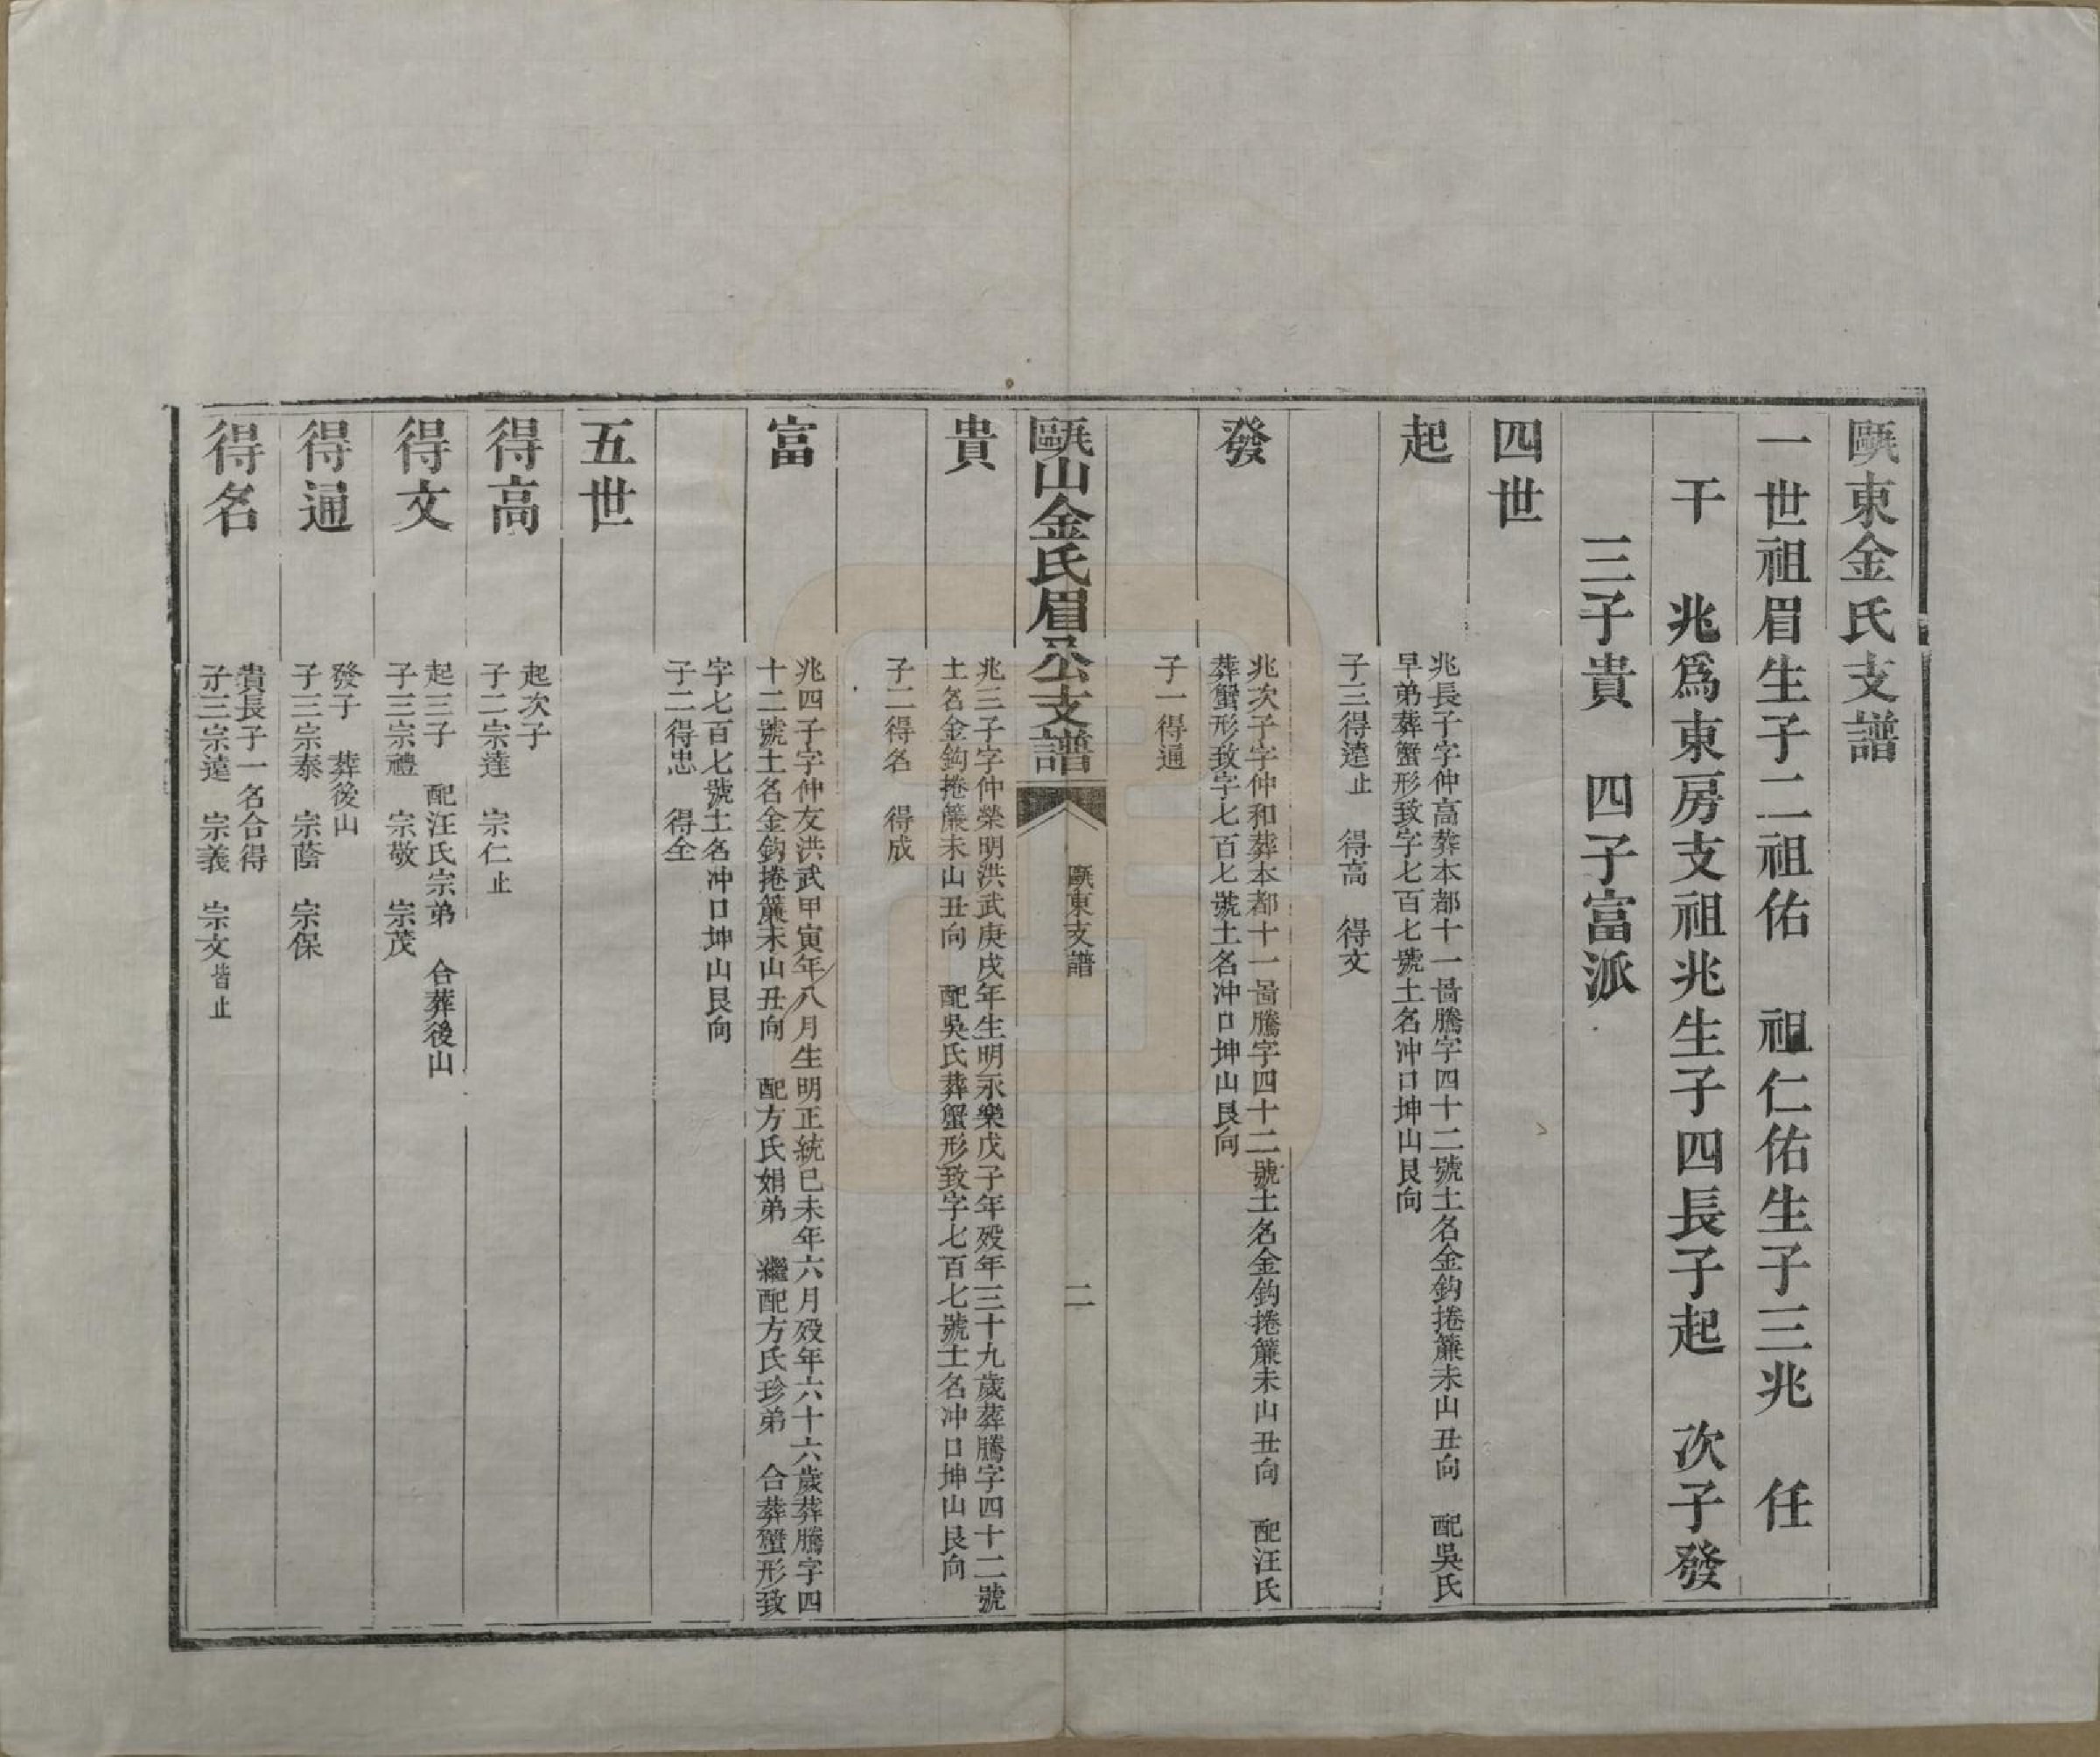 甌東金氏支譜
一世祖眉生子二祖佑　祖仁佑生子三兆　任
干　兆爲東房支祖兆生子四長子起　次子發
三子貴　四子富派
四世
起
兆長子字仲高葬本都十一啚騰字四十二號土名金鈎捲簾未山丑向　配吳氏
早弟葬蟹形致字七百七號土名冲口坤山艮向
子三得達止　得高　得文
發
兆次子字仲和葬本都十一啚騰字四十二號土名金鈎捲簾未山丑向　配汪氏
葬蟹形致字七百七號土名冲口坤山艮向
子一得通
甌山金氏眉公支譜
甌東支譜
二
貴
兆三子字仲榮明洪武庚戌年生明永樂戊子年歿年三十九歲葬騰字四十二號
土名金鈎捲簾未山丑向　配吳氏葬蟹形致字七百七號土名冲口坤山艮向
子二得名　得成
富
兆四子字仲友洪武甲寅年八月生明正統己未年六月歿年六十六歲葬騰字四
十二號土名金鈎捲簾未山丑向　配方氏娟弟　繼配方氏珍弟　合葬蟹形致
字七百七號土名冲口坤山艮向
子二得忠　得全
五世
得高
起次子
子二宗達　宗仁止
得文
起三子　配汪氏宗弟　合葬後山
子三宗禮　宗敬　宗茂
得通
發子　葬後山
子三宗泰　宗蔭　宗保
得名
貴長子一名合得
子三宗遠　宗義　宗文皆止